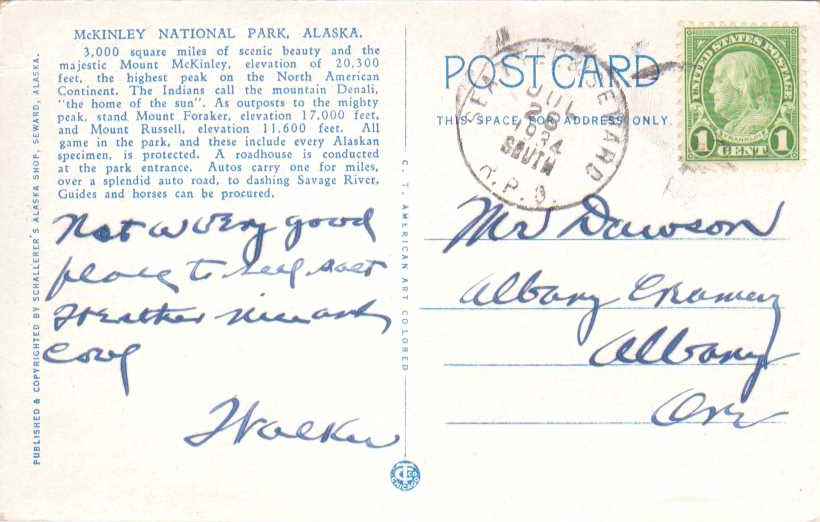 McKINLEY NATIONAL PARK, ALASKA.
3,000 square miles of scenic beauty and the
majestic Mount McKinley, elevation of 20,300
feet, the highest peak on the North American
Continent. The Indians call the mountain Denali,
"the home of the sun". As outposts to the mighty
peak, stand Mount Foraker, elevation 17,000 feet,
and Mount Russell, elevation 11,600 feet. All
game in the park, and these include every Alaskan
specimen, is protected. A roadhouse is conducted
at the park entrance. Autos carry one for miles,
over a splendid auto road, to dashing Savage River.
Guides and horses can be procured.
Not a very good
place to sell
Weather
Walker
PUBLISHED & COPYRIGHTED BY SCHALLERER'S ALASKA SHOP, SEWARD, ALASKA.
C. T. AMERICAN ART COLORED
POST CARD
THIS SPACE FOR ADDRESS ONLY.
SEWARD
JUL
28
SOUTH
R.P.O.
UNITED STATES POSTAGE
FRANKLIN
1 CENT 1
Mr Dawson
Albany Creamery
Albany
Ore